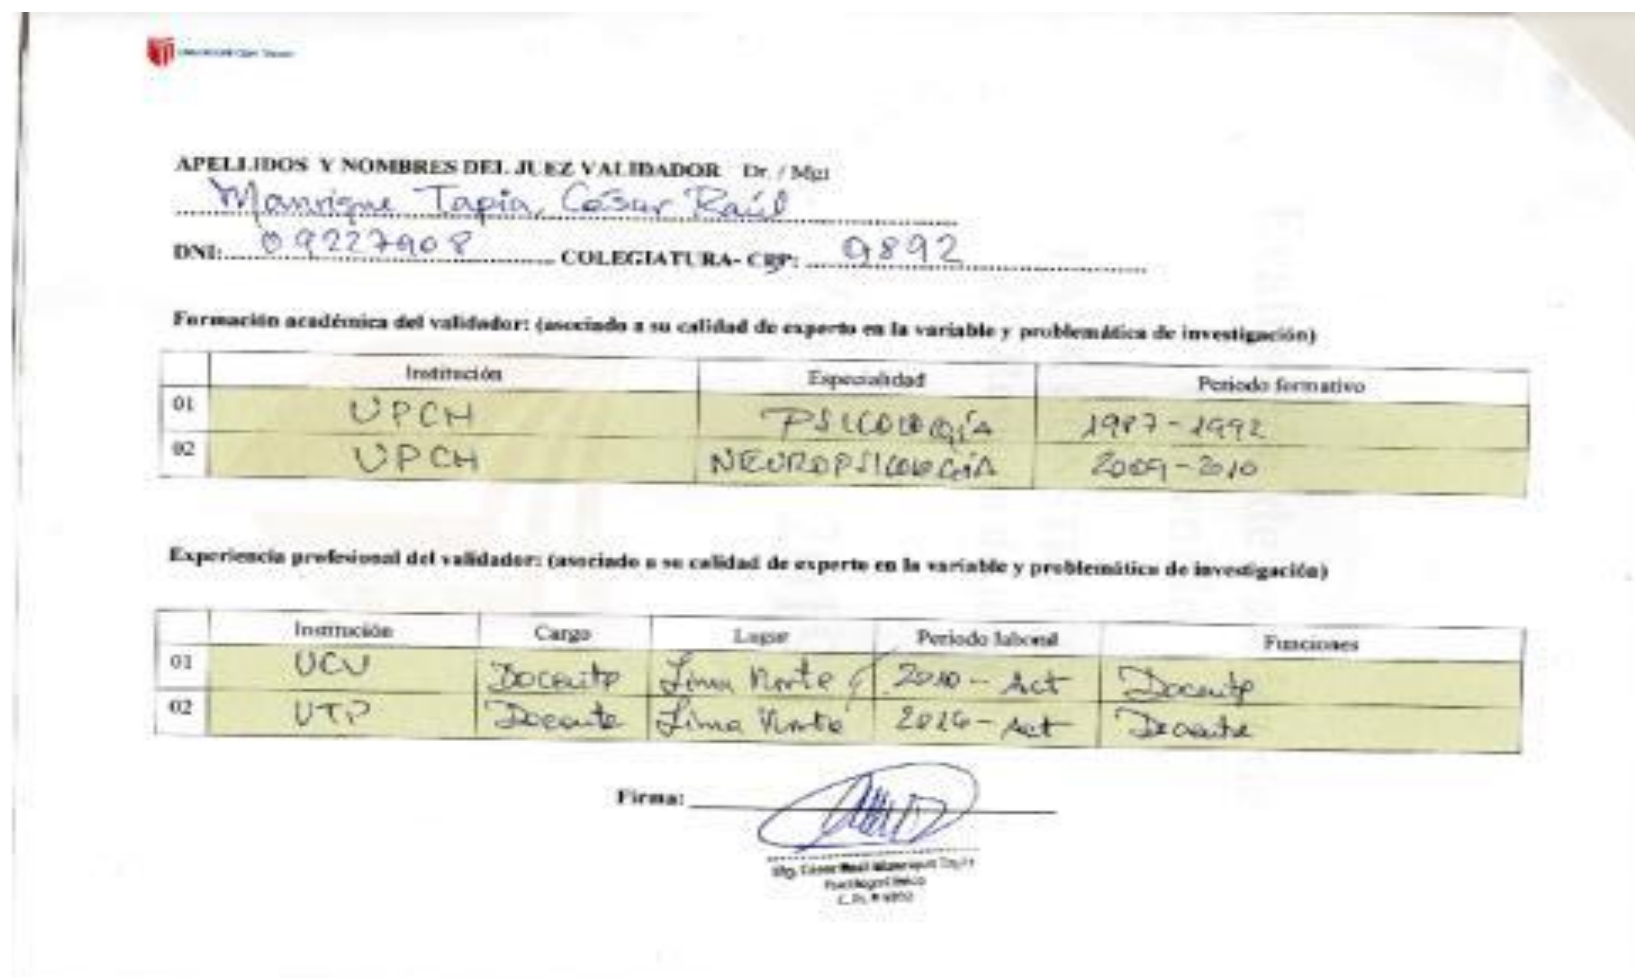 APELLIDOS Y NOMBRES DEL JUEZ VALIDADOR Dr. / Mgt
Manrique Tapia, César Raúl
DNI: 09227908 COLEGIATURA- CBP: 9892
Formación académica del validador: (asociado a su calidad de experto en la variable y problemática de investigación)
Institución Especialidad Periodo formativo
01 UPCH PSICOLOGÍA 1987-1992
02 UPCH NEUROPSICOLOGÍA 2009-2010
Experiencia profesional del validador: (asociado a su calidad de experto en la variable y problemática de investigación)
Institución Cargo Lugar Periodo laboral Funciones
01 UCV Docente Lima Norte 2010 - Act Docente
02 UTP Docente Lima Norte 2016 - Act Docente
Firma:
Mg. César Raúl Manrique Tapia